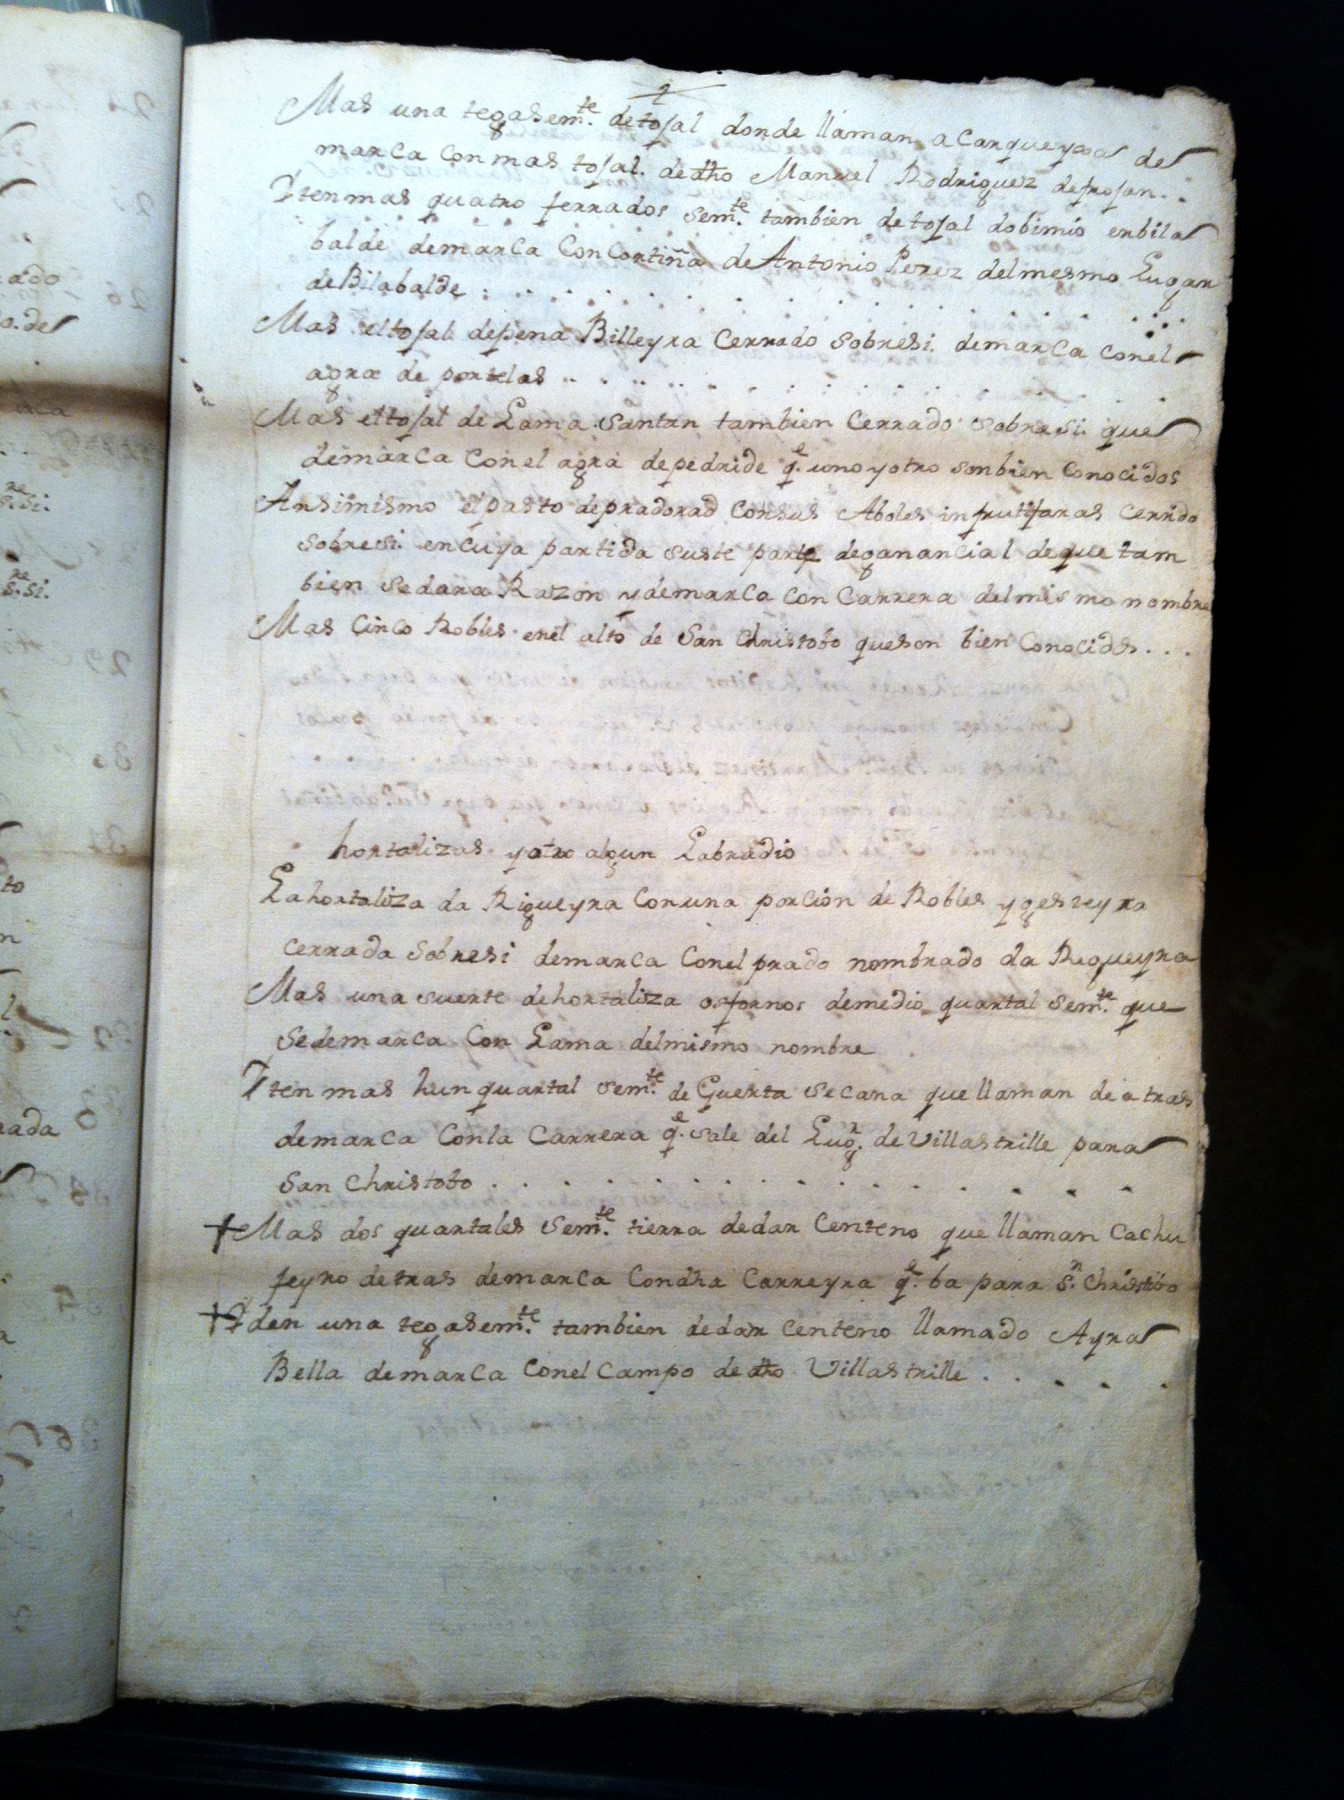 Mas una tega sem.te de tosal donde llaman a Carqueyxa de
marca con mas tosal. de dho Manuel Rodriguez defrofan..
Iten mas quatro ferrados sem.te tambien de tosal dobimio en bila
balde demarca Con Cortiña de Antonio Perez del mesmo Lugar
de Bilabalde
Mas el tosal de pena Billeyra Cerrado sobresi. demarca con el
agra de portelas
Mas el tosal de Lama Santan tambien Cerrado sobresi. que
demarca con el agra de pedride q.e uno y otro son bien Conocidos
Ansimismo el pasto de pradorad Con sus Aboles infrutiferas Cerrdo
sobresi. en cuya partida suste parte de ganancial de que tam
bien se dara Razon y demarca con Carrera del mismo nombre
Mas Cinco Robles en el alto de San Christobo que son bien Conocids...
hortalizas y otro algun Labradio
La hortaliza da Rigueyra Con una porcion de Robles y gesteyra
cerrada sobresi demarca Con el prado nombrado da Regueyra
Mas una suerte de hortaliza os fornos de medio quartal sem.te que
se demarca Con Lama del mismo nombre
Iten mas hun quartal sem.te de Guerta secana que llaman de atras
demarca Con la Carrera q.e sale del Lug.r de Villastrille para
San Christobo
+ Mas dos quartales sem.te tierra de dar Centeno que llaman Cachu
feyro de tras demarca Con dha Carreyra q.e ba para S.n Christobo
+ Iden una tega sem.te tambien de dar centeno llamado Ayra
Bella demarca Con el Campo de dho Villastrille
ado
o. de
rada